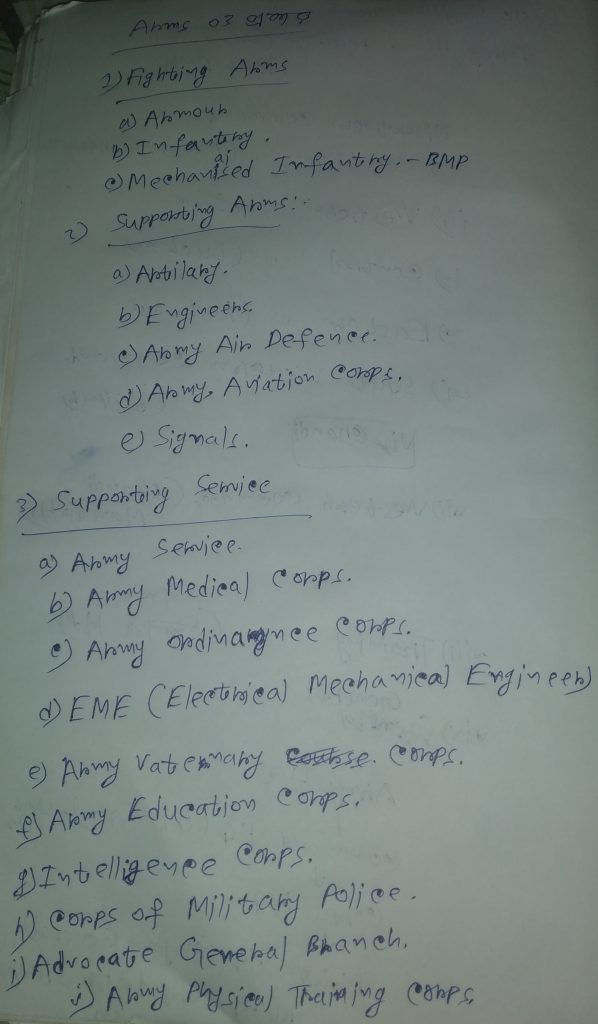 Arms 03
1) Fighting Arms
a) Armour
b) Infantery.
c) Mechanised Infantry. - BMP
2) Supporting Arms:-
a) Artilary.
b) Engineers.
c) Army Air Defence.
d) Army Aviation Corps.
e) Signals.
3) Supporting Service
a) Army Service.
b) Army Medical Corps.
c) Army Ordinarynce Corps.
d) EME (Electrical Mechanical Engineer)
e) Army Vaternary Corps.
f) Army Education Corps.
g) Intelligence Corps.
h) Corps of Military Police.
i) Advocate General Branch.
j) Army Physical Training Corps